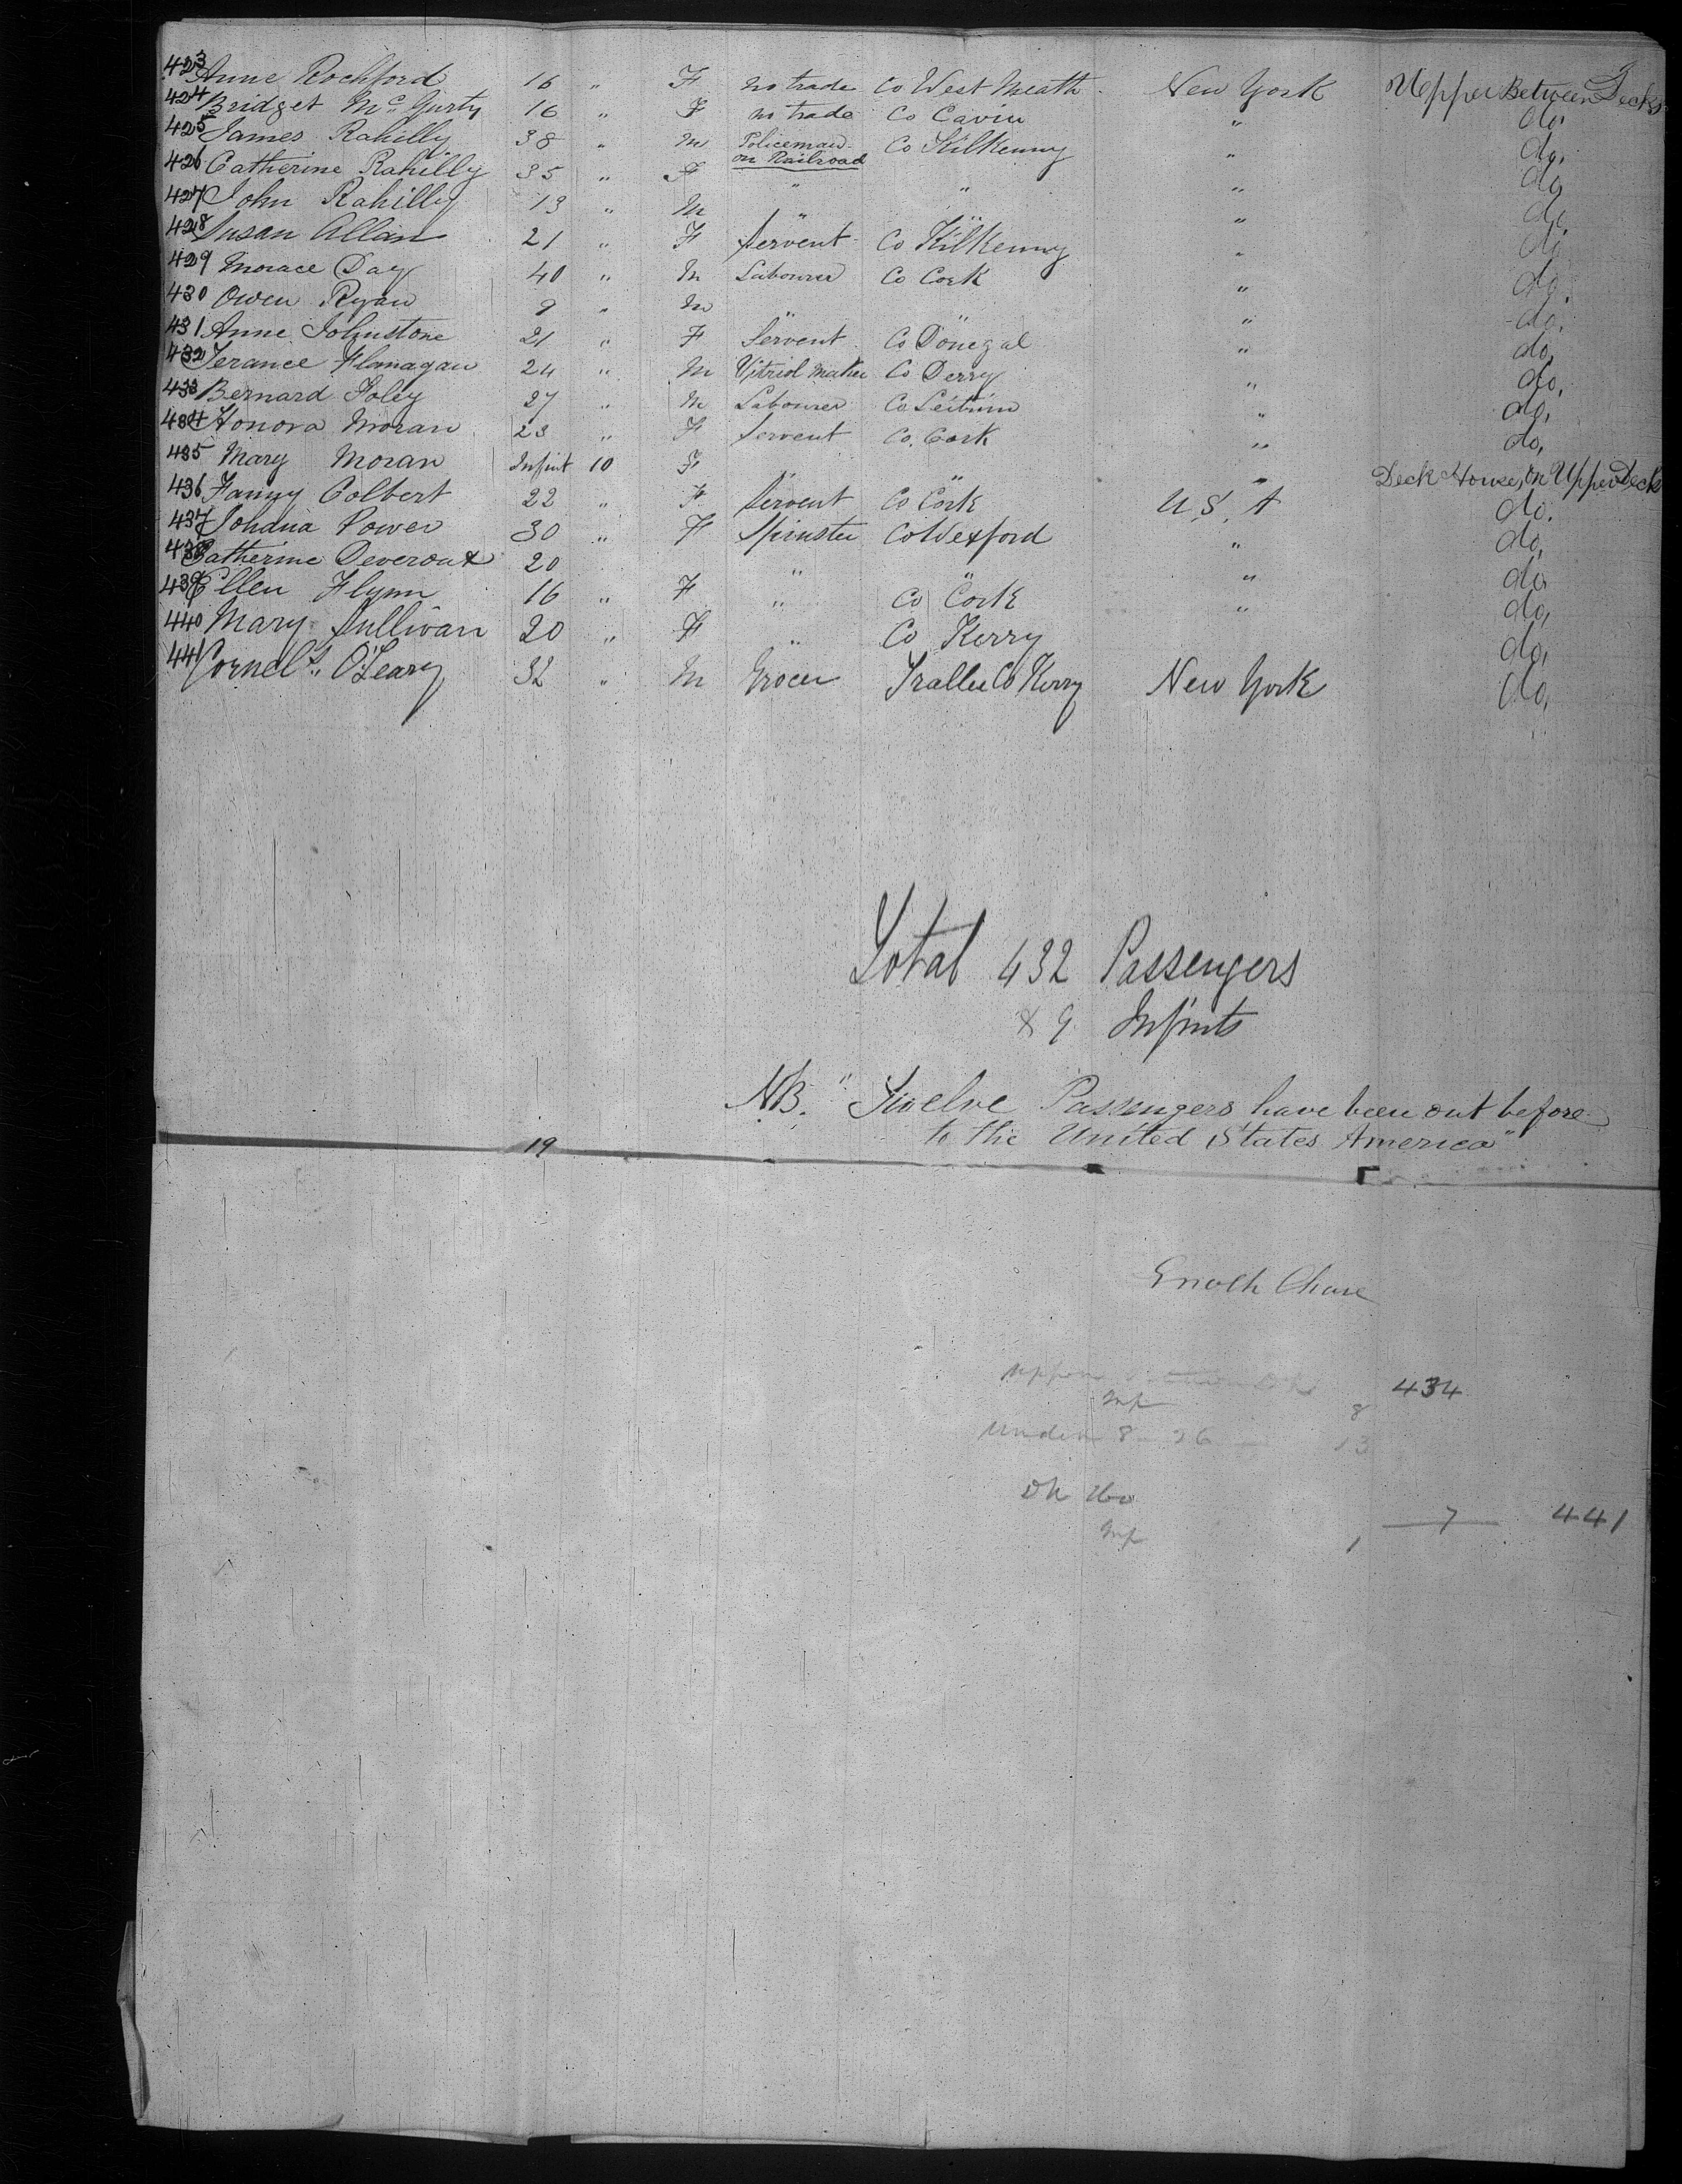 423 Anne Rochford 16 " F no trade Co West Meath New York Upper Between Decks
424 Bridget McGurty 16 " F no trade Co Cavin " do.
425 James Rahilly 38 " M Policeman on Railroad Co Kilkenny " do.
426 Catherine Rahilly 35 " F " " " do,
427 John Rahilly 13 " M " " " do
428 Susan Allan 21 " F Servent Co Kilkenny " do
429 Morace Day 40 " M Labourer Co Cork " do.
430 Owen Ryan 9 " M " " " do.
431 Anne Johnstone 21 " F Servent Co Donegal " do,
432 Terance Flanagan 24 " M Vitriol Maker Co Derry " do,
433 Bernard Foley 27 " M Labourer Co Leitrim " do,
434 Honora Moran 23 " F Servent Co. Cork " do,
435 Mary Moran Infint 10 F " " " Deck House, on Upper Deck
436 Fanny Colbert 22 " F Servent Co Cork U.S. A do.
437 Johana Power 30 " F Spinster Co Wexford " do,
438 Catherine Deveroux 20 " " " do
439 Ellen Flynn 16 " F " Co Cork " do,
440 Mary Sullivan 20 " F " Co Kerry do,
441 Cornels. O'Leary 32 " M Grocer Trallee Co Kerry New York do,
Total 432 Passengers
& 9 Infints
NB. "Twelve Passengers have been out before
to the United States America"
19
Enoch Chase
Upper 434
Inf 8
Under 8 - 26 - 13
Dk Ho 7 441
Inf 1